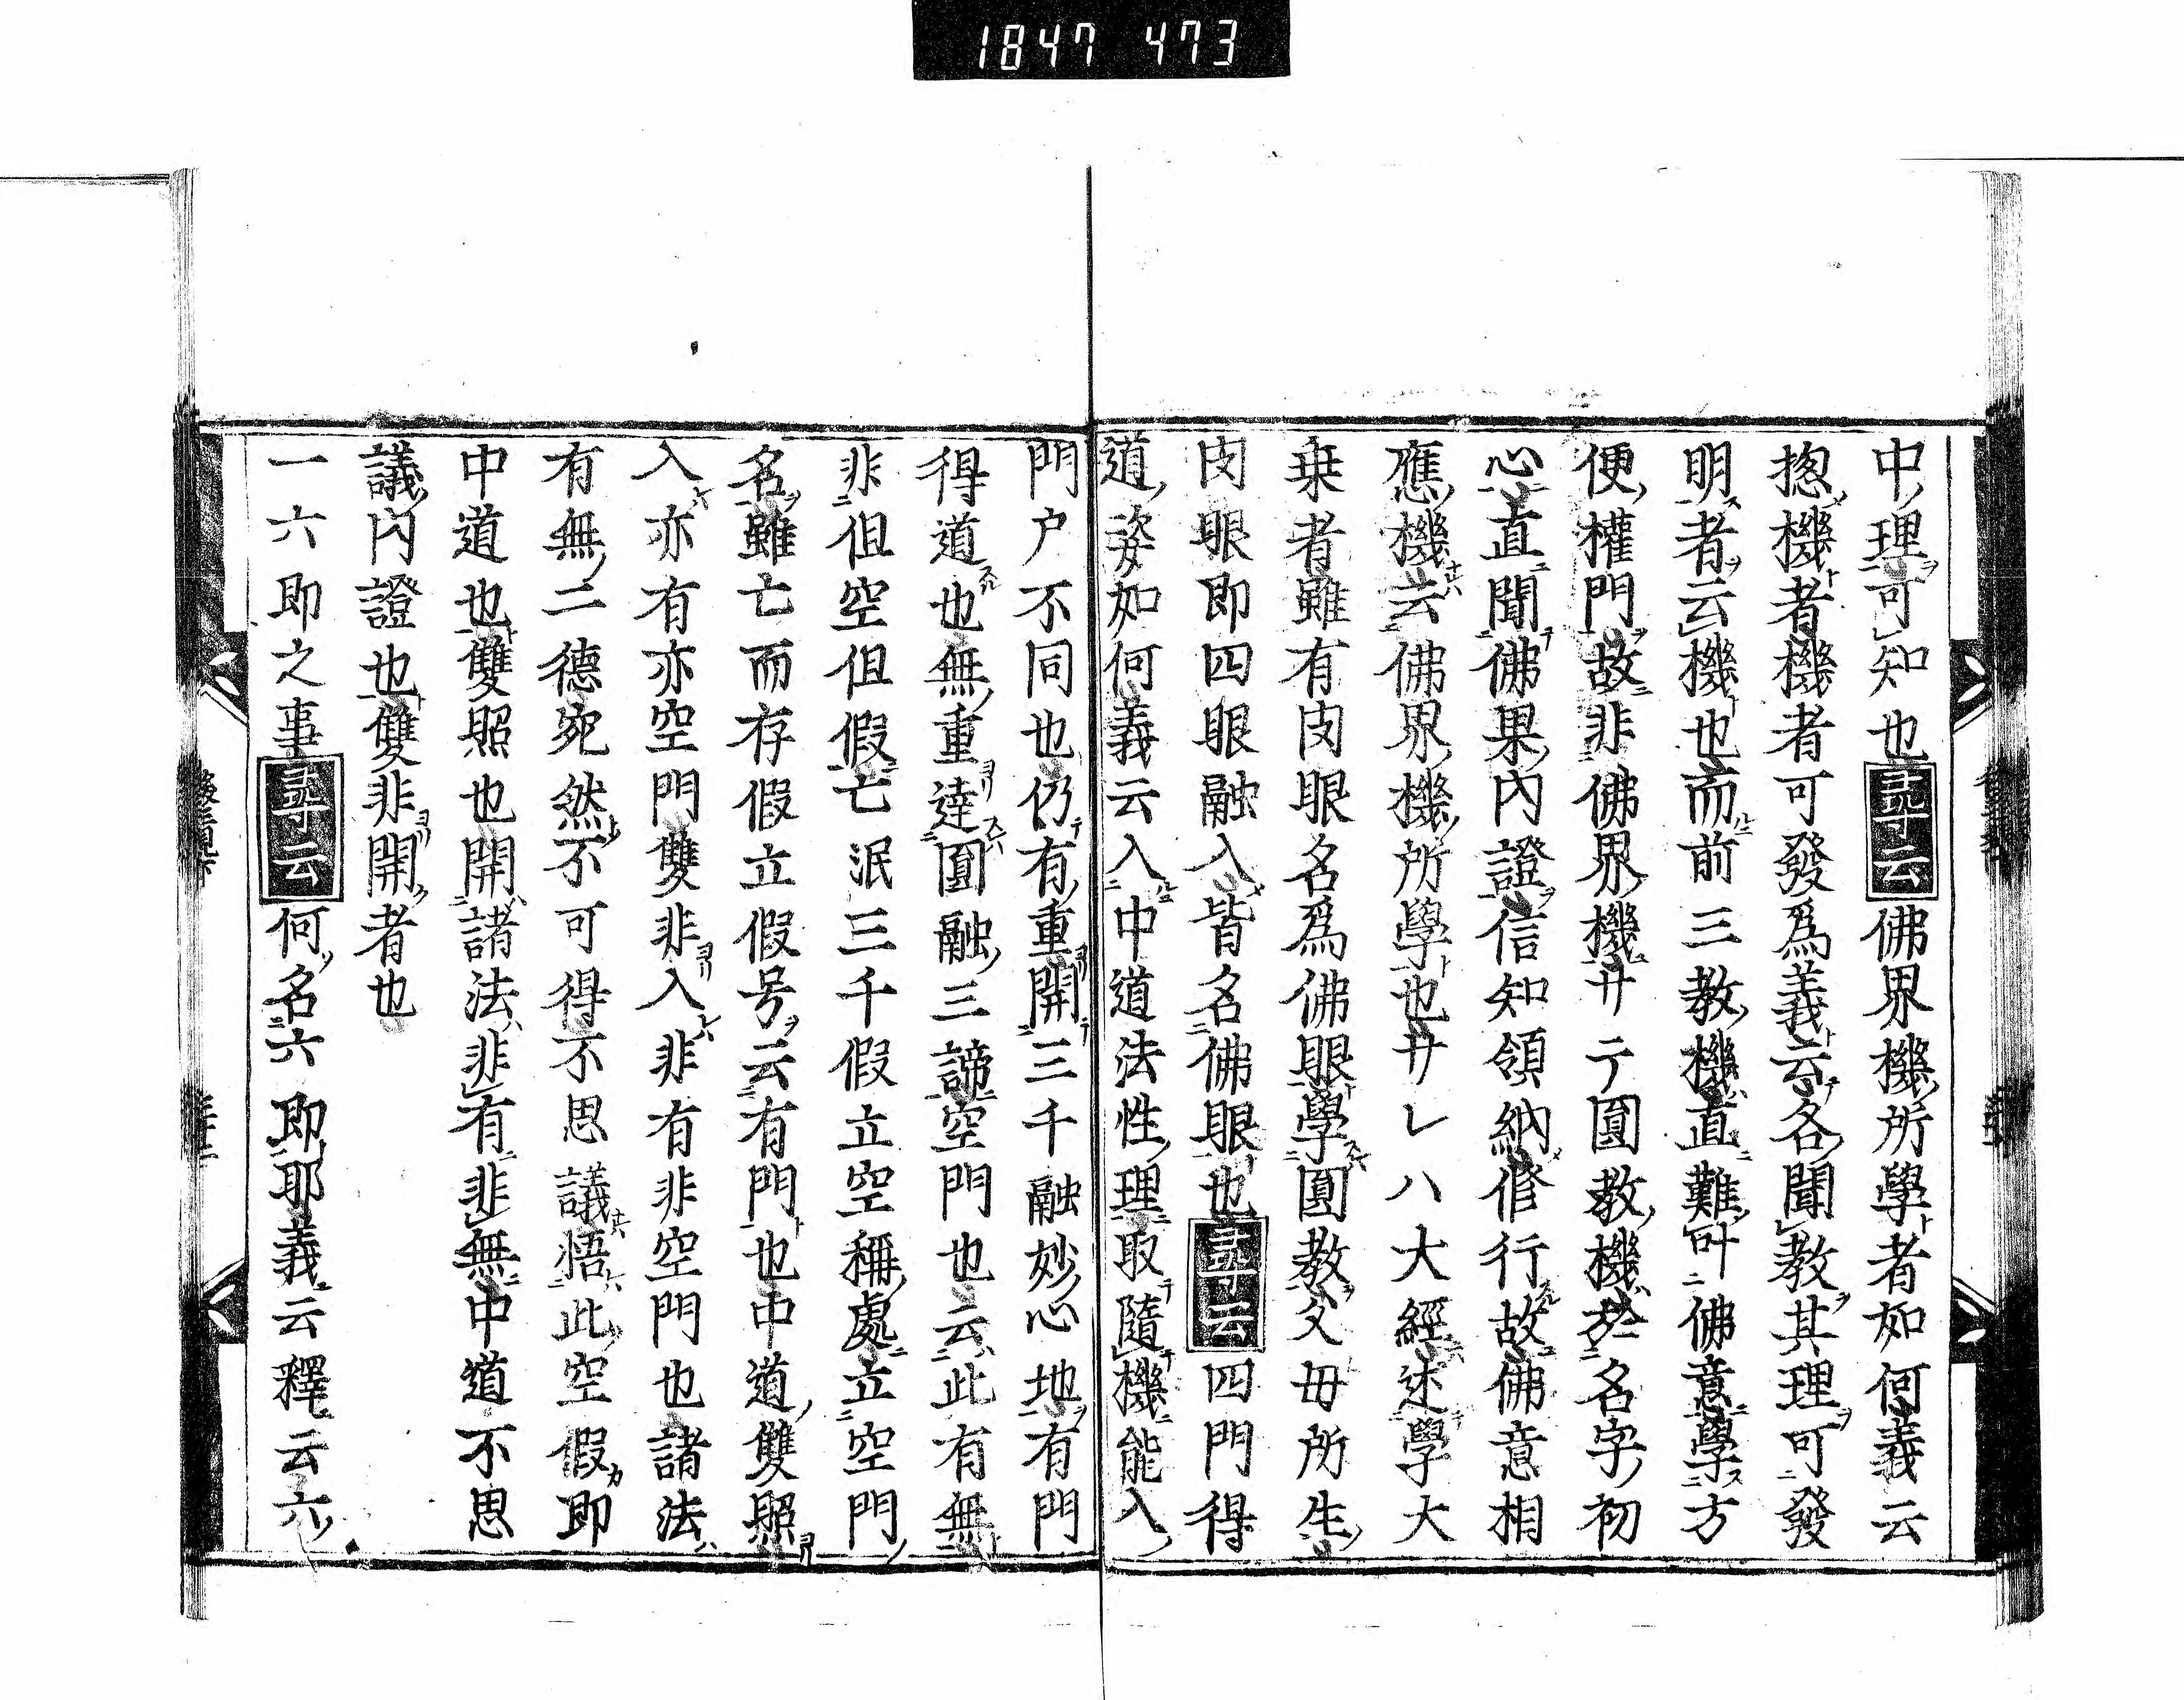 1847 473
中理可知也尋云佛界機所學者如何義云
揔機者機者可發爲義云各聞教其理可發
明者云機也而前三教機直難叶佛意學方
便權門故非佛界機サテ圓教機於名字初
心直聞佛果內證信知領納修行故佛意相
應機云佛界機所學也サレハ大經述學大
乗者雖有肉眼名爲佛眼學圓教父母所生
肉眼即四眼融入皆名佛眼也尋云四門得
道姿如何義云入中道法性理取隨機能入
門户不同也仍有重開三千融妙心地有門
得道也無重達圓融三諦空門也云此有無
非但空但假亡泯三千假立空稱處立空門
名雖亡而存假立假号云有門也中道雙照
入亦有亦空門雙非入非有非空門也諸法
有無二德宛然不可得不思議悟此空假即
中道也雙照也開諸法非有非無中道不思
議內證也雙非開者也
一六即之事尋云何名六即耶義云釋云六